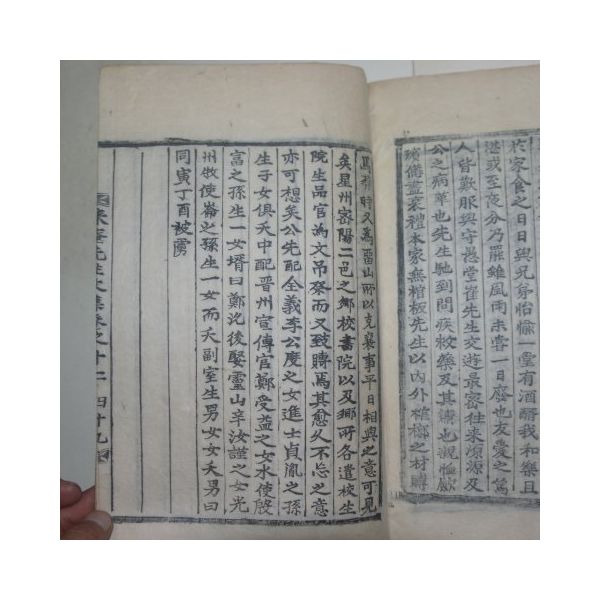 於家食之日日與兄弟怡愉一室有酒酤我和樂且
湛或至夜分乃罷雖風雨未嘗一日廢也友愛之篤
人皆歎服與守愚堂崔先生交遊最密往來源源及
公之病革也先生馳到問疾救藥及其
禮本家無棺板先生以內外槨之材賻
焉 時又爲 山所以克襄事平日相與之意可見
矣星州密陽二邑之鄕校書院以及鄕所各遣校生
院生品官爲文吊祭而又致賻焉其愈久不忘之意
亦可想矣公先配全義李公度之女進士貞胤之孫
生子女俱夭中配晋州宣傳官鄭受益之女水使殷
富之孫生一女壻曰鄭沇後娶靈山辛汝謹之女光
州牧使崙之孫生一女而夭副室生男女女夭男曰
同寅丁酉被虜
來庵先生文集卷之十二 四十九